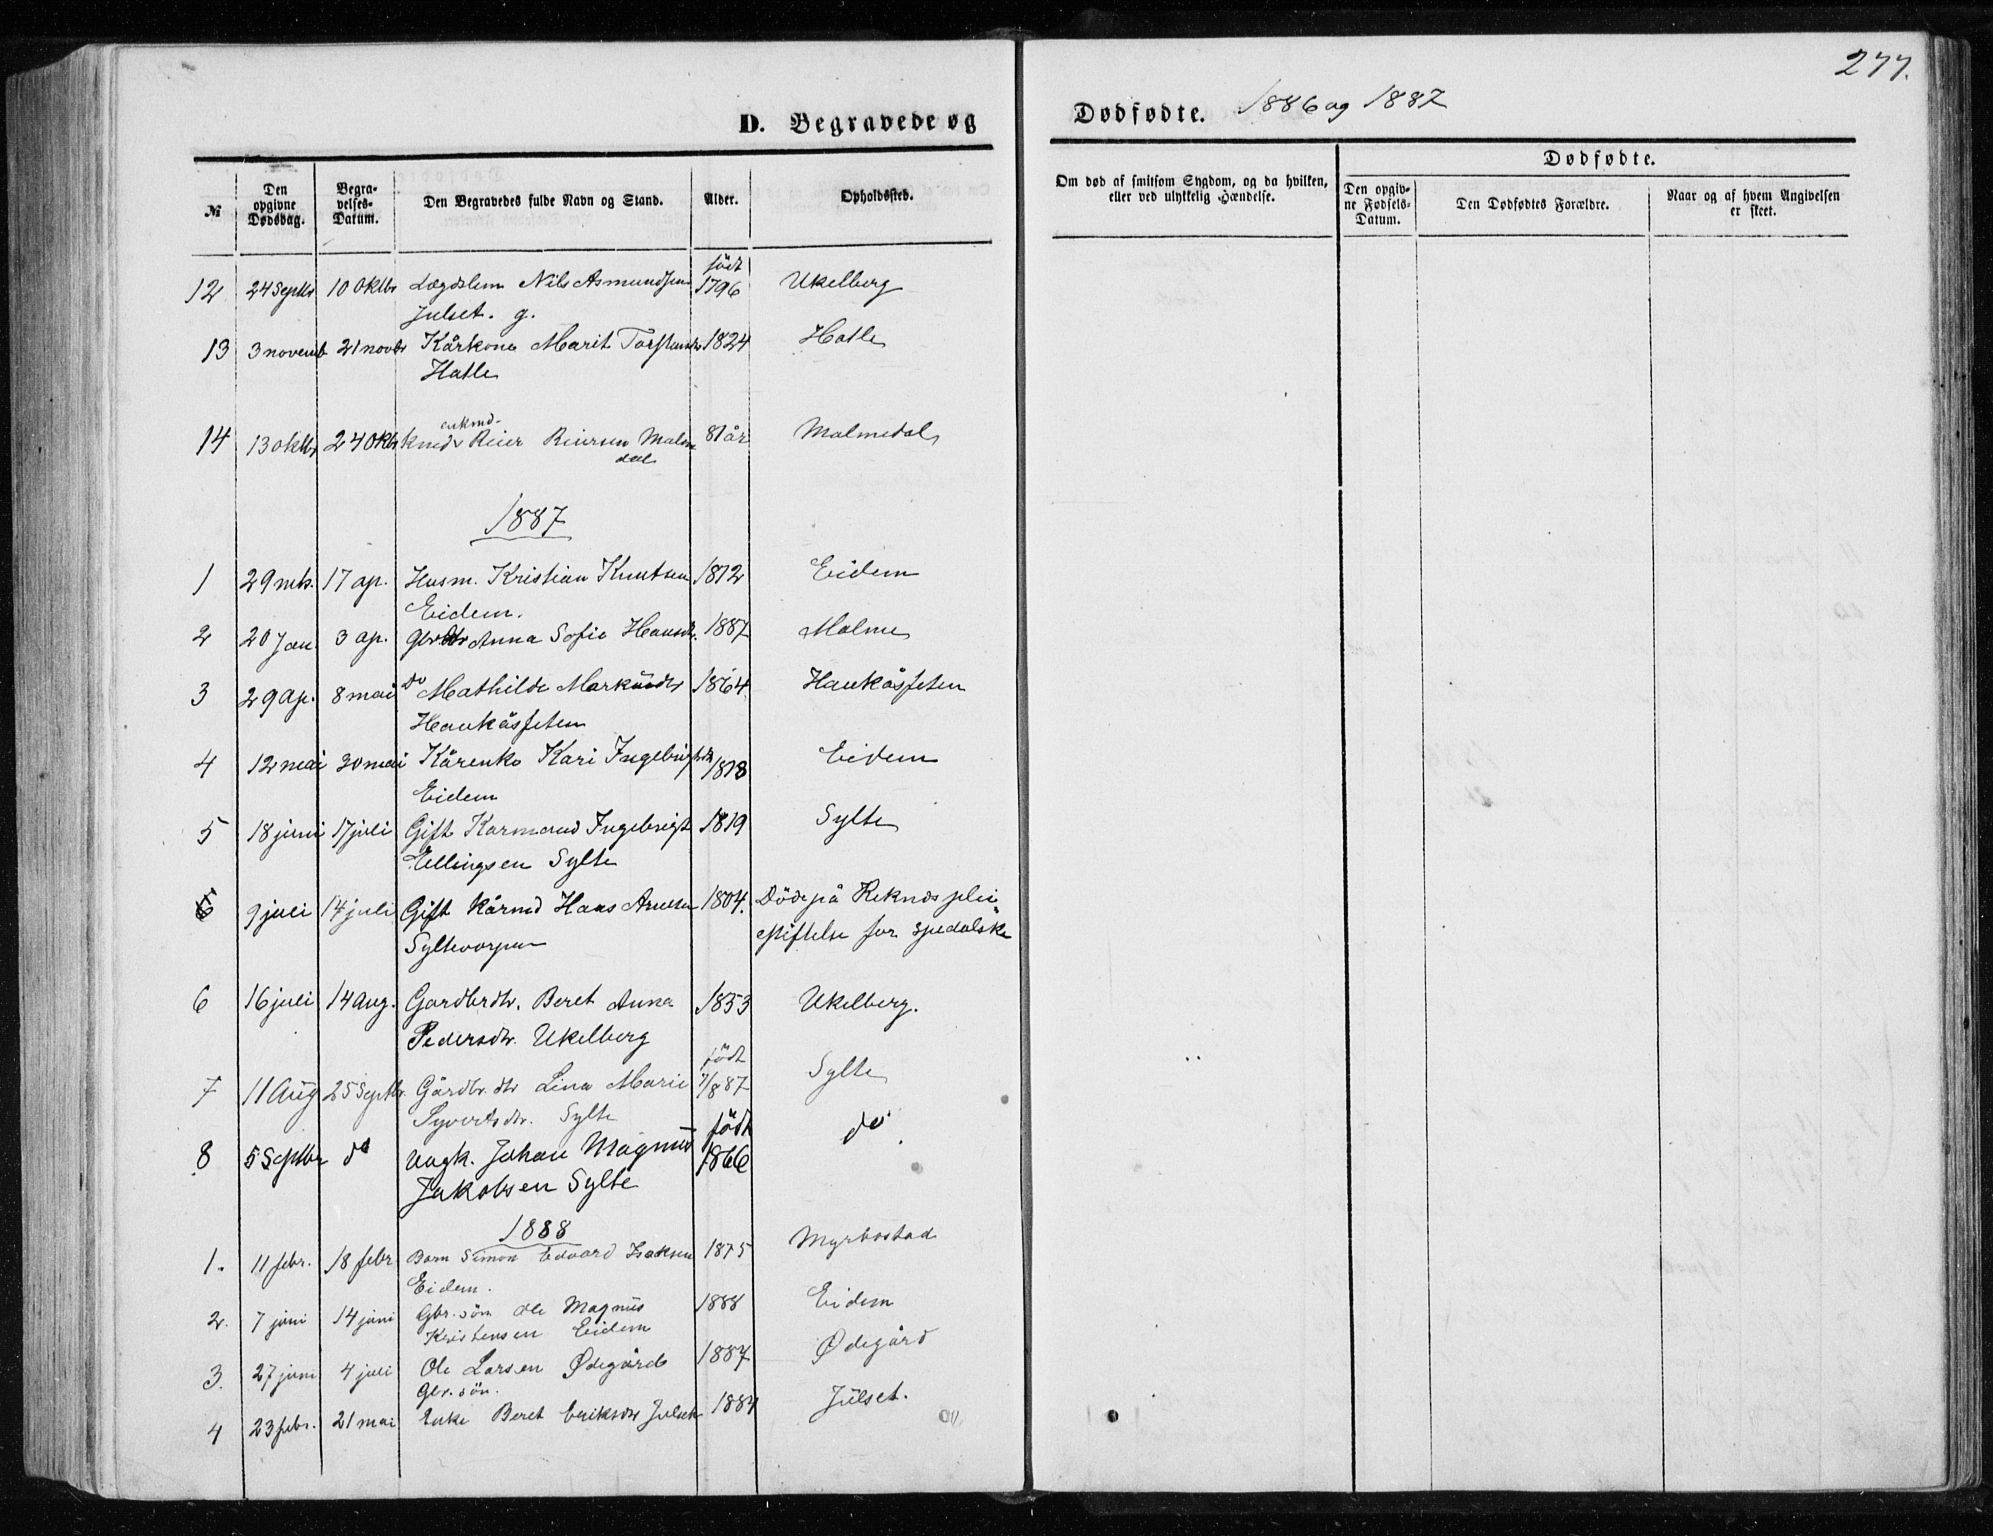 277.
D. Begravede og
Dødfødte. 1886 og 1887
№
Den opgivne Dødsdag.
Begravelses-Datum.
Den Begravedes fulde Navn og Stand.
Alder.
Opholdssted.
Om død af smitsom Sygdom, og da hvilken, eller ved ulykkelig Hændelse.
Dødfødte.
Den opgivne Fødsels-Datum.
Den Dødfødtes Forældre.
Naar og af hvem Angivelsen er skeet.
12 24 Septbr 10 Oktbr Lægdslem Nils Asmundsen født 1796 Ukelberg
Julset. g.
13 3 novemb 21 novbr Kårkona Marit Torstensdr 1824 Hatle
Hatle
enkmd.
14 13 oktbr 24 Oktbr Reier Reiersen Malme 81 år Malmedal
dal
1887
1 29 mts. 17 ap. Husm. Kristian Knutsen 1812 Eidem
Eidem.
2 20 Jan. 3 ap. Gbr. dtr Anna Sofie Hansdr. 1887 Malme
3 29 ap. 8 mai do Mathilde Markusdr 1864 Haukåsseten
Haukåsseten
4 12 mai 30 mai Kårenke Kari Ingebrigtsdtr 1818 Eidem
Eidem
5 18 juni 17 juli Gift Karmand Ingebrigt 1819 Sylte
Ellingsen Sylte
6 9 juli 14 juli Gift kårmd Hans Arnesen 1804. Døde på Reknæs plei
Syltevorpen stiftelse for spedalske
6 16 juli 14 Aug. Gardbrdtr. Beret Anna 1853 Ukelberg.
Pedersdtr. Ukelberg
født
7 11 Aug 25 Septbr. Gårdbr. dtr Lina Marie 7/887 Sylte
Syvertsdtr. Sylte
født
8 5 Septbr do Ungk. Johan Magnus 1866 do.
Jakobsen Sylte
1888
1. 11 febr. 18 febr Barn Simon Edvard Isaksen 1875 Myrbostad
Eidem.
2. 7 juni 14 juni Gbr. søn Ole Magnus 1888 Eidem
Kristensen Eidem
3. 27 juni 4 juli Ole Larsen Ødegård 1887 Ødegård
Gbr. søn.
4 23 febr. 21 mai Enke Beret Eriksdtr Julset Julset.